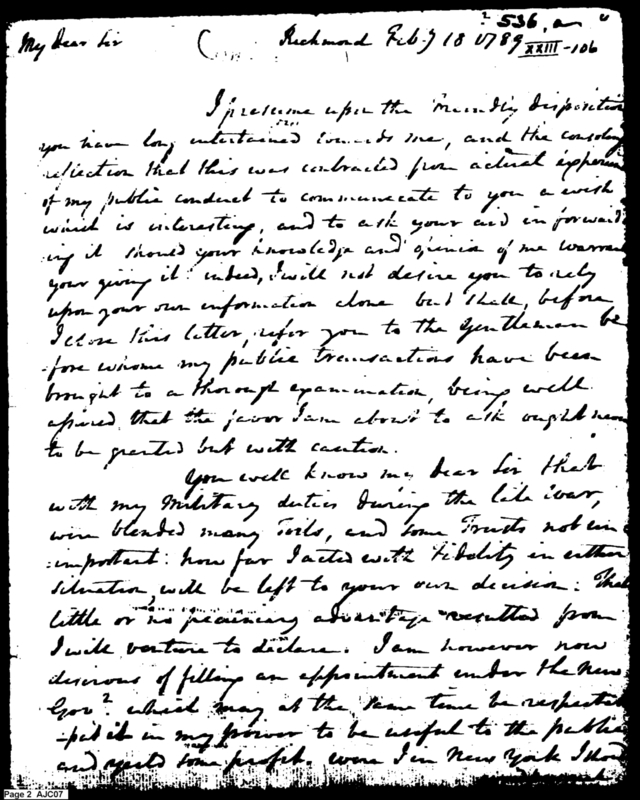 536, a
My Dear Sir
Richmond Feby 18 1789
XXIII-106
I presume upon the Friendly disposition
you have long entertained towards me, and the consoling
reflection that this was contracted from actual experience
of my public conduct to communicate to you a wish
which is interesting, and to ask your aid in forward
ing it should your knowledge and opinion of me warrant
your giving it: indeed, I will not desire you to rely
upon your own information alone but shall, before
I close this letter, refer you to the Gentlemen be
fore whome my public transactions have been
brought to a thorough examination, being well
apized, that the favor I am about to ask ought never
to be granted but with caution.
You well know my Dear Sir that
with my Military duties during the late War,
were blended many Civils, and some Trusts not un
important: how far I acted with Fidelity in either
Situation, will be left to your own decision: That
little or no pecuniary advantage resulted from
I will venture to declare. I am however now
desirous of filling an appointment under the New
Govt. which may at the same time be respectable
put it in my power to be useful to the public
and yield some profit. were I in New York I shou
Page 2 AJC07